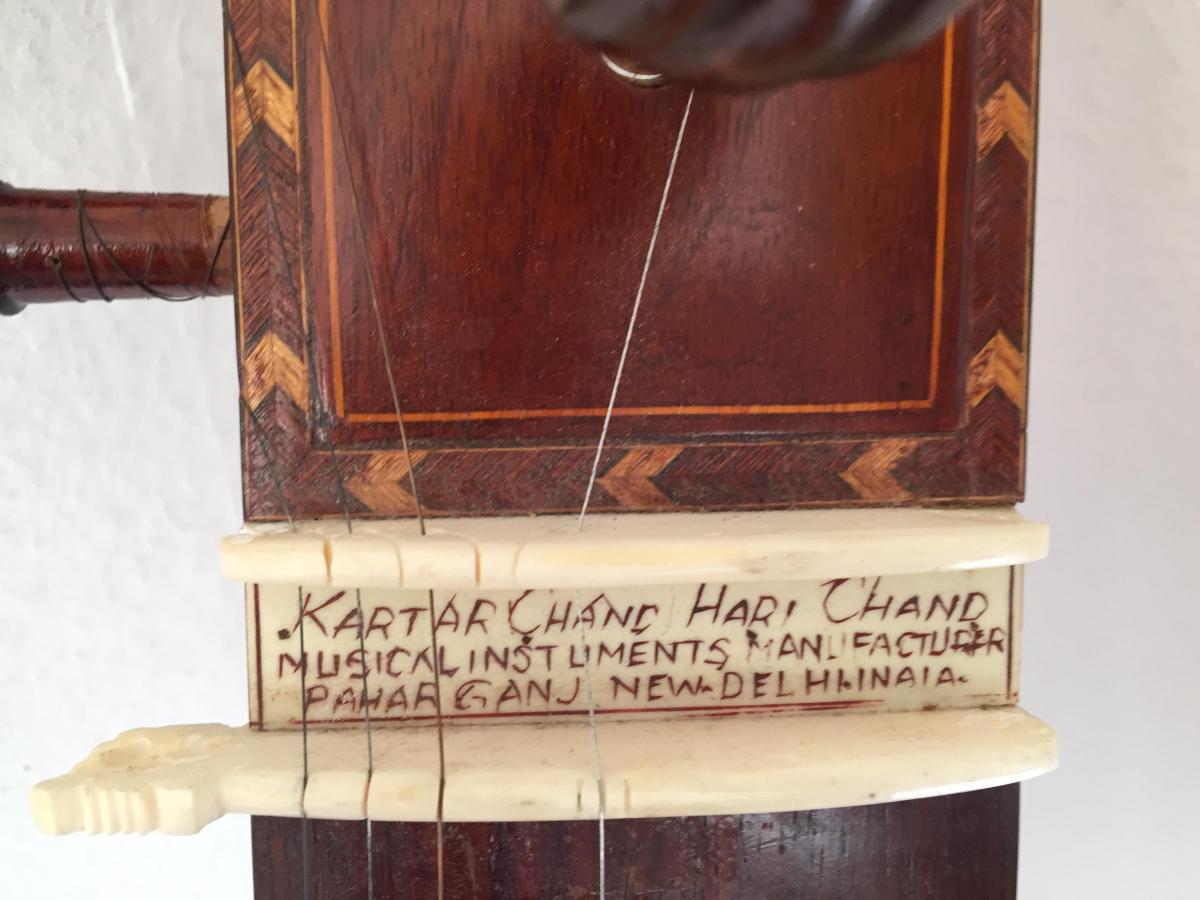 KARTAR CHAND HARI CHAND
MUSICAL INSTUMENTS MANUFACTURER
PAHAR GANJ NEW-DELHI-INAIA.